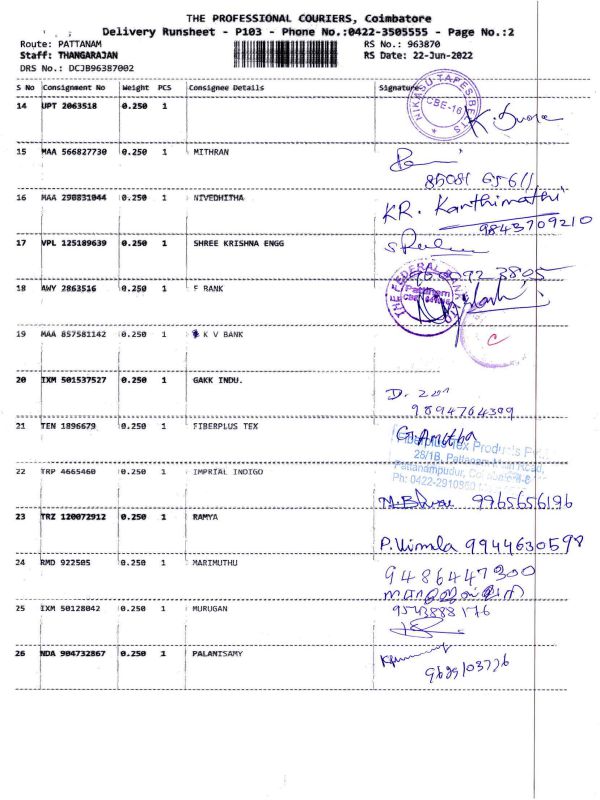 THE PROFESSIONAL COURIERS, Coimbatore
Delivery Runsheet - P103 - Phone No.:0422-3505555 - Page No.:2
Route: PATTANAM RS No.: 963870
Staff: THANGARAJAN RS Date: 22-Jun-2022
DRS No.: DCJB96387002
S No Consignment No Weight PCS Consignee Details Signature
NIKASU TAPES BELTS
CBE-16
14 UPT 2063518 0.250 1
15 MAA 566827730 0.250 1 MITHRAN
85081 65611
16 MAA 290831044 0.250 1 NIVEDHITHA KR. Kanthimathi
9843709210
17 VPL 125189639 0.250 1 SHREE KRISHNA ENGG
THE FEDERAL BANK
Pattanam
18 AWY 2863516 0.250 1 F BANK
19 MAA 857581142 0.250 1 K V BANK
20 IXM 501537527 0.250 1 GAKK INDU.
9894764309
21 TEN 1896679 0.250 1 FIBERPLUS TEX G. Amutha
Fiberplus Tex Products
26/1B, Pattanam Main Road,
Pattanampudur, Coimbatore
Ph: 0422-2910950
22 TRP 4665460 0.250 1 IMPRIAL INDIGO 9965656196
23 TRZ 120072912 0.250 1 RAMYA P. Vimala 9944630598
24 RMD 922505 0.250 1 MARIMUTHU 9486447300
25 IXM 50128042 0.250 1 MURUGAN 9543888176
26 NDA 904732867 0.250 1 PALANISAMY
9629103776